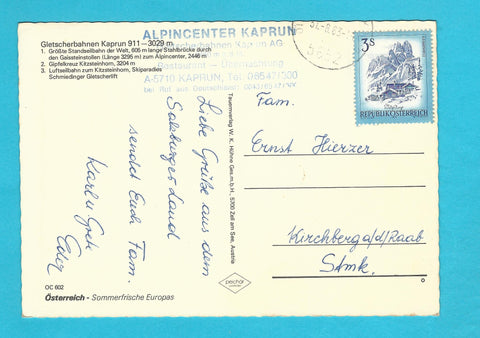 Gletscherbahnen Kaprun 911 – 3029 m
1. Größte Standseilbahn der Welt, 605 m lange Stahlbrücke durch
den Geissteinstollen (Länge 3295 m) zum Alpincenter, 2446 m
2. Gipfelkreuz Kitzsteinhorn, 3204 m
3. Luftseilbahn zum Kitzsteinhorn, Skiparadies
Schmiedinger Gletscherlift
ALPINCENTER KAPRUN
Gletscherbahnen Kaprun AG
Restaurant - Übernachtung
A-5710 KAPRUN, Tel. 06547/300
bei Ruf aus Deutschland:
3S
REPUBLIK ÖSTERREICH
Liebe Grüße aus dem
Salzburger Land
sendet Euch Fam.
Karl u Greti
Fam.
Ernst Hierzer
Kirchberg a/d/Raab
Stmk.
Tauernverlag W. K. Hühne Ges.m.b.H., 5700 Zell am See, Austria
pechar
OC 602
Österreich - Sommerfrische Europas